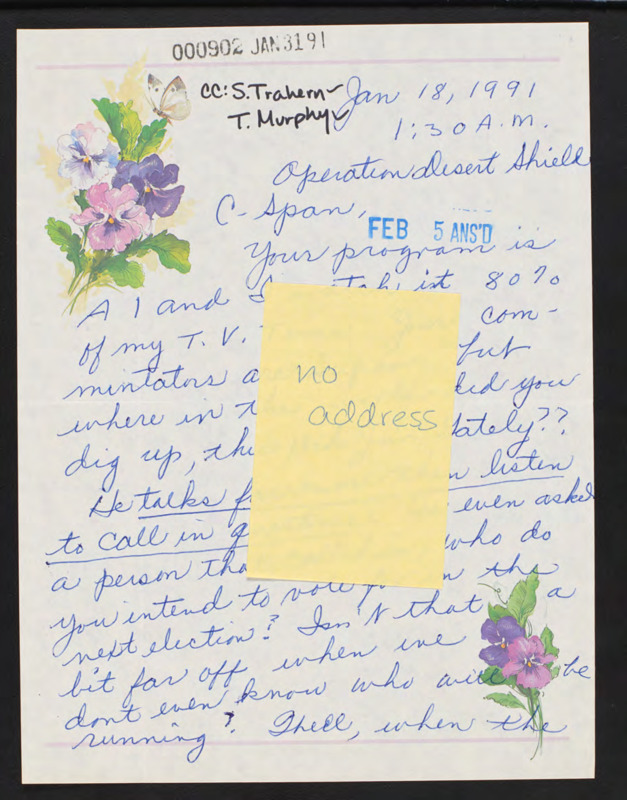 000902 JAN 31 91
CC: S. Trahern
T. Murphy
Jan 18, 1991
1:30 A.M.
Operation Desert Shield
C-Span,
FEB 5 ANS'D
Your program is
A 1 and I it 80%
of my T.V. com-
mintators a but
where in t did you
dig up, the lately??
no
address
He talks f n listen
to call in g even asked
a person tha who do
you intend to vote for in the
next election? Isn't that a
bit far off when we
dont even know who will be
running? Thell, when the